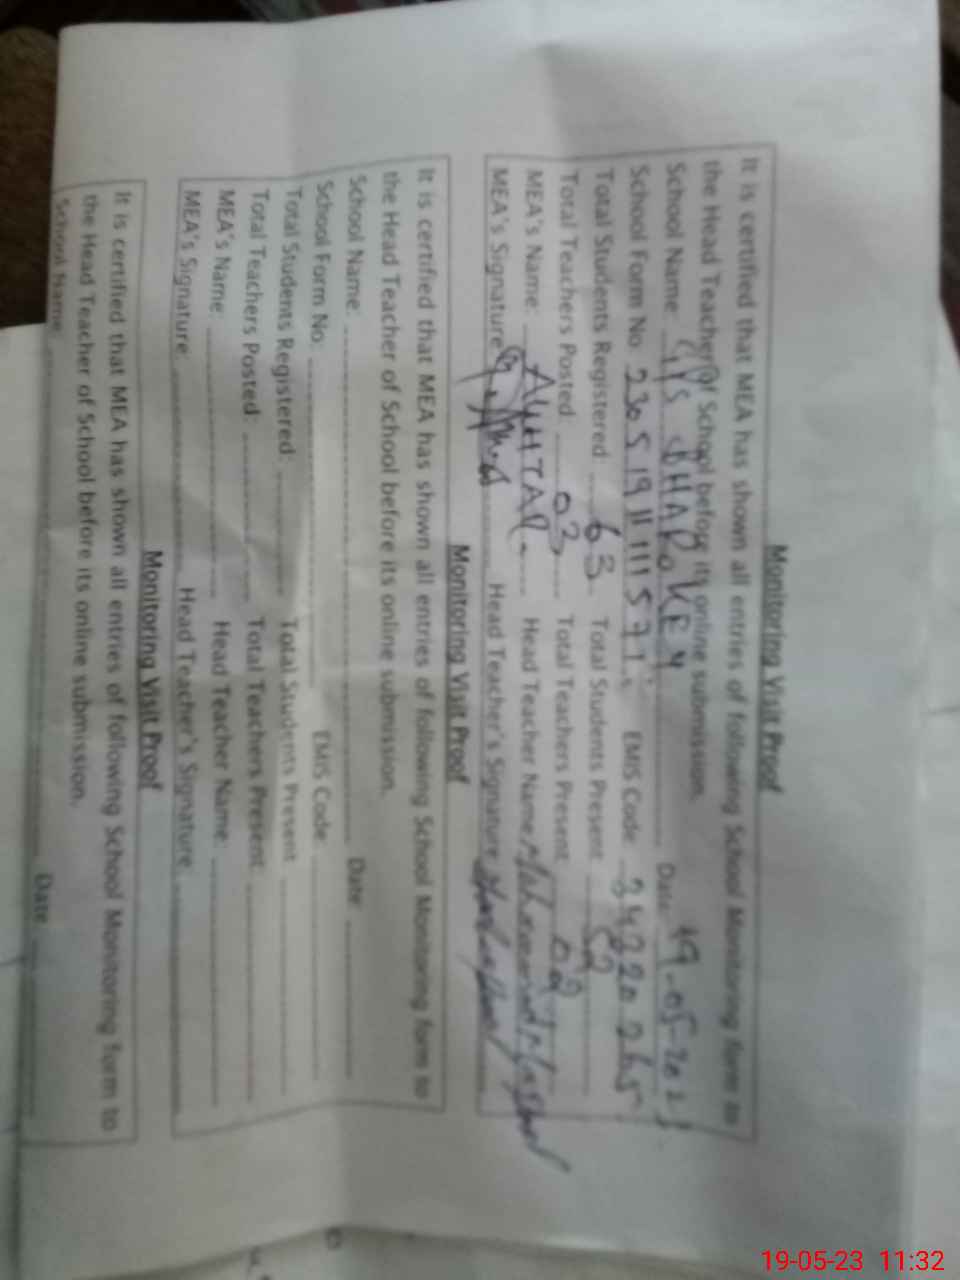 Monitoring Visit Proof
It is certified that MEA has shown all entries of following School Monitoring form to
the Head Teacher of School before its online submission.
School Name: GPS Date: 19-05-2023
School Form No. EMIS Code
Total Students Registered: 63 Total Students Present 52
Total Teachers Posted: 03 Total Teachers Present 02
MEA's Name: AKHTAR. Head Teacher Name:
MEA's Signature Head Teacher's Signature
Monitoring Visit Proof
It is certified that MEA has shown all entries of following School Monitoring form to
the Head Teacher of School before its online submission.
School Name: Date
School Form No. EMIS Code
Total Students Registered: Total Students Present
Total Teachers Posted: Total Teachers Present
MEA's Name: Head Teacher Name:
MEA's Signature Head Teacher's Signature
Monitoring Visit Proof
It is certified that MEA has shown all entries of following School Monitoring form to
the Head Teacher of School before its online submission.
School Name Date
19-05-23 11:32